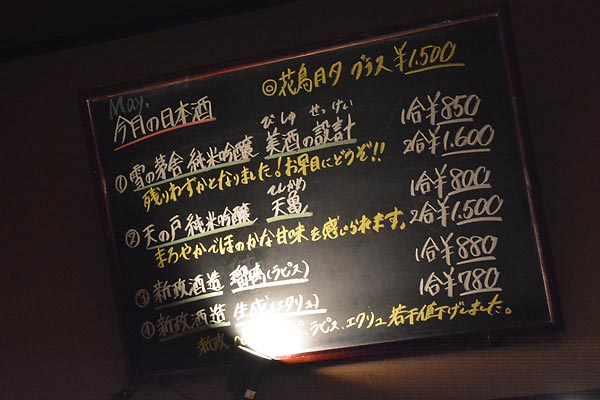 May.
今月の日本酒
◎花鳥月夕 グラス ¥1,500
びしゅ せっけい
①雪の茅舎 純米吟醸 美酒の設計 1合¥850
残りわずかとなりました。お早目にどうぞ!! 2合¥1,600
てんかめ
②天の戸 純米吟醸 天亀 1合¥800
まろやかでほのかな甘味を感じられます。 2合¥1,500
③新政酒造 瑠璃(ラピス) 1合¥880
④新政酒造 生成(エクリュ) 1合¥780
新政 ラピス、エクリュ若干値下げしました。